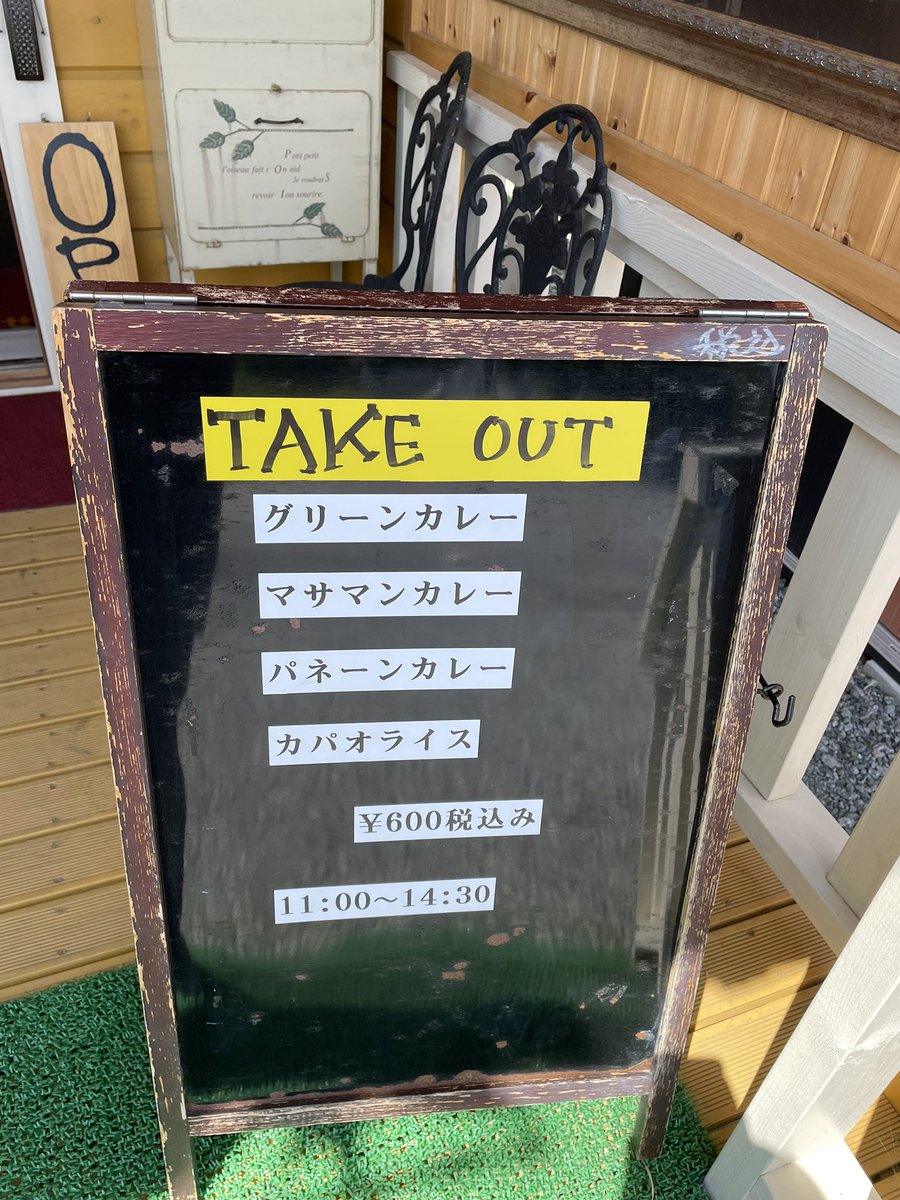 OP
Petit petit
l'oiseau fait sOn nid
Je voudraiS
revoir ton sourire.
TAKE OUT
グリーンカレー
マサマンカレー
パネーンカレー
カパオライス
¥600税込み
11:00～14:30